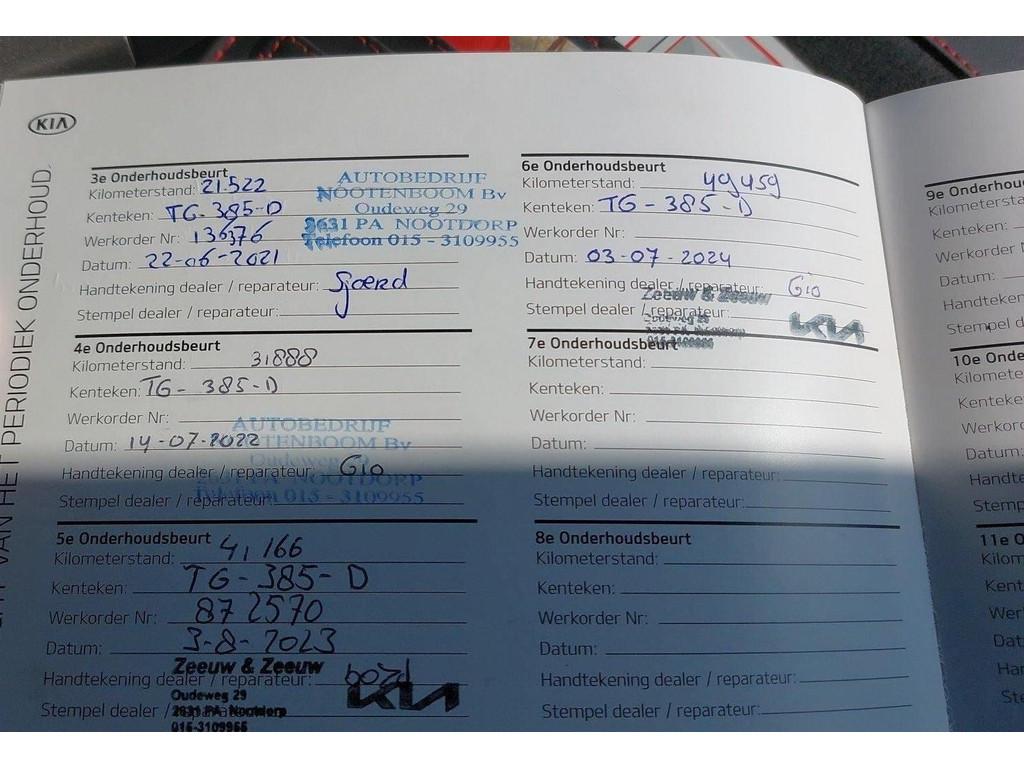 KIA
VAN HET PERIODIEK ONDERHOUD.
3e Onderhoudsbeurt
Kilometerstand: 21.522
Kenteken: TG-385-D
Werkorder Nr: 136376
Datum: 22-06-2021
Handtekening dealer / reparateur: Sjoerd
Stempel dealer / reparateur:
AUTOBEDRIJF
NOOTENBOOM Bv
Oudeweg 29
2631 PA NOOTDORP
Telefoon 015 - 3109955
4e Onderhoudsbeurt
Kilometerstand: 31888
Kenteken: TG-385-D
Werkorder Nr:
Datum: 14-07-2022
Handtekening dealer / reparateur: Gio
Stempel dealer / reparateur:
AUTOBEDRIJF
NOOTENBOOM Bv
Oudeweg 29
PA NOOTDORP
Telefoon 015 - 3109955
5e Onderhoudsbeurt
Kilometerstand: 41 166
Kenteken: TG-385-D
Werkorder Nr: 872570
Datum: 3-8-2023
Handtekening dealer / reparateur:
Stempel dealer / reparateur:
Zeeuw & Zeeuw
Oudeweg 29
2631 PA Nootdorp
015-3109955
KIA
6e Onderhoudsbeurt
Kilometerstand: 49459
Kenteken: TG-385-D
Werkorder Nr:
Datum: 03-07-2024
Handtekening dealer / reparateur: Gio
Stempel dealer / reparateur:
Zeeuw & Zeeuw
Oudeweg 29
2631 PA Nootdorp
KIA
7e Onderhoudsbeurt
Kilometerstand:
Kenteken:
Werkorder Nr:
Datum:
Handtekening dealer / reparateur:
Stempel dealer / reparateur:
8e Onderhoudsbeurt
Kilometerstand:
Kenteken:
Werkorder Nr:
Datum:
Handtekening dealer / reparateur:
Stempel dealer / reparateur:
9e Onderhou
Kilometersta
Kenteken:
Werkorder N
Datum:
Handteken
Stempel d
10e Onde
Kilomete
Kenteke
Werkor
Datum:
Handte
Stemp
11e O
Kilom
Kent
Wer
Dat
Ha
Ste